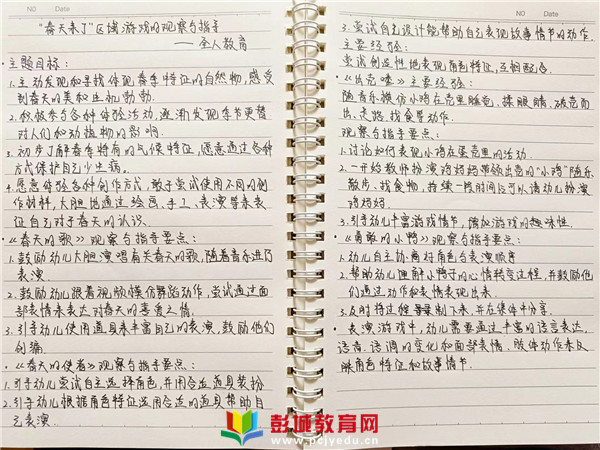 NO Date
"春天来了"区域游戏的观察与指导
——圣人教育
·主题目标:
1.主动发现和寻找体现春季特征的自然物,感受
到春天的美和生机勃勃.
2.积极参与各种体验活动,逐渐发现季节更替
对人们和动植物的影响.
3.初步了解春季特有的气候特征,愿意通过各种
方式保护自己少生病.
4.愿意体验各种创作方式,敢于尝试使用不同的创
作材料,大胆地通过绘画、手工、表演等来表
征自己对于春天的认识.
·《春天的歌》观察与指导要点:
1.鼓励幼儿大胆演唱有关春天的歌,随着音乐进行
表演.
2.鼓励幼儿跟着视频模仿舞蹈动作,尝试通过面
部表情来表达对春天的喜爱之情.
3.引导幼儿使用道具来丰富自己的表演,鼓励他们
创编.
·《春天的使者》观察与指导要点:
1.引导幼儿尝试自主选择角色,并用合适道具装扮
2.引导幼儿根据角色特征选用合适的道具帮助自
己表演.
NO Date
3.尝试自主设计能帮助自己表现故事情节的动作.
主要经验:
尝试创造性地表现角色特征,互相配合.
《出壳喽》主要经验:
随音乐模仿小鸡在壳里睡觉、揉眼睛、破壳而
出、走路、找食等动作.
观察与指导要点:
1.讨论如何表现小鸡在蛋壳里的活动.
2.一开始教师扮演鸡妈妈带领出壳的"小鸡"随乐
散步、找食物,持续一段时间后可以请幼儿扮演
鸡妈妈.
3.引导幼儿丰富游戏情节,增加游戏的趣味性.
《勇敢的小鸭》观察与指导要点:
1.幼儿自主协商好角色与表演顺序
2.帮助幼儿理解小鸭子的心情转变过程,并鼓励他
们通过动作和表情表现出来.
3.及时将过程录制下来,并在集体中分享.
·表演游戏中,幼儿需要通过丰富的语言表达,
语言、语调的变化和面部表情、肢体动作来反
映角色特征和故事情节.
彭城教育网
www.pcjyedu.cn